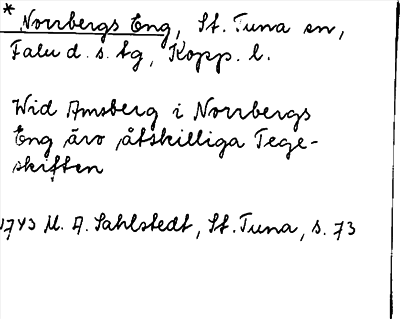 * Norrbergs Eng, St. Tuna sn,
Falu d. s. tg, Kopp. l.
Wid Amsberg i Norrbergs
Eng äro åtskilliga Tege-
skiften
1743 M. A. Sahlstedt, St. Tuna, s. 73